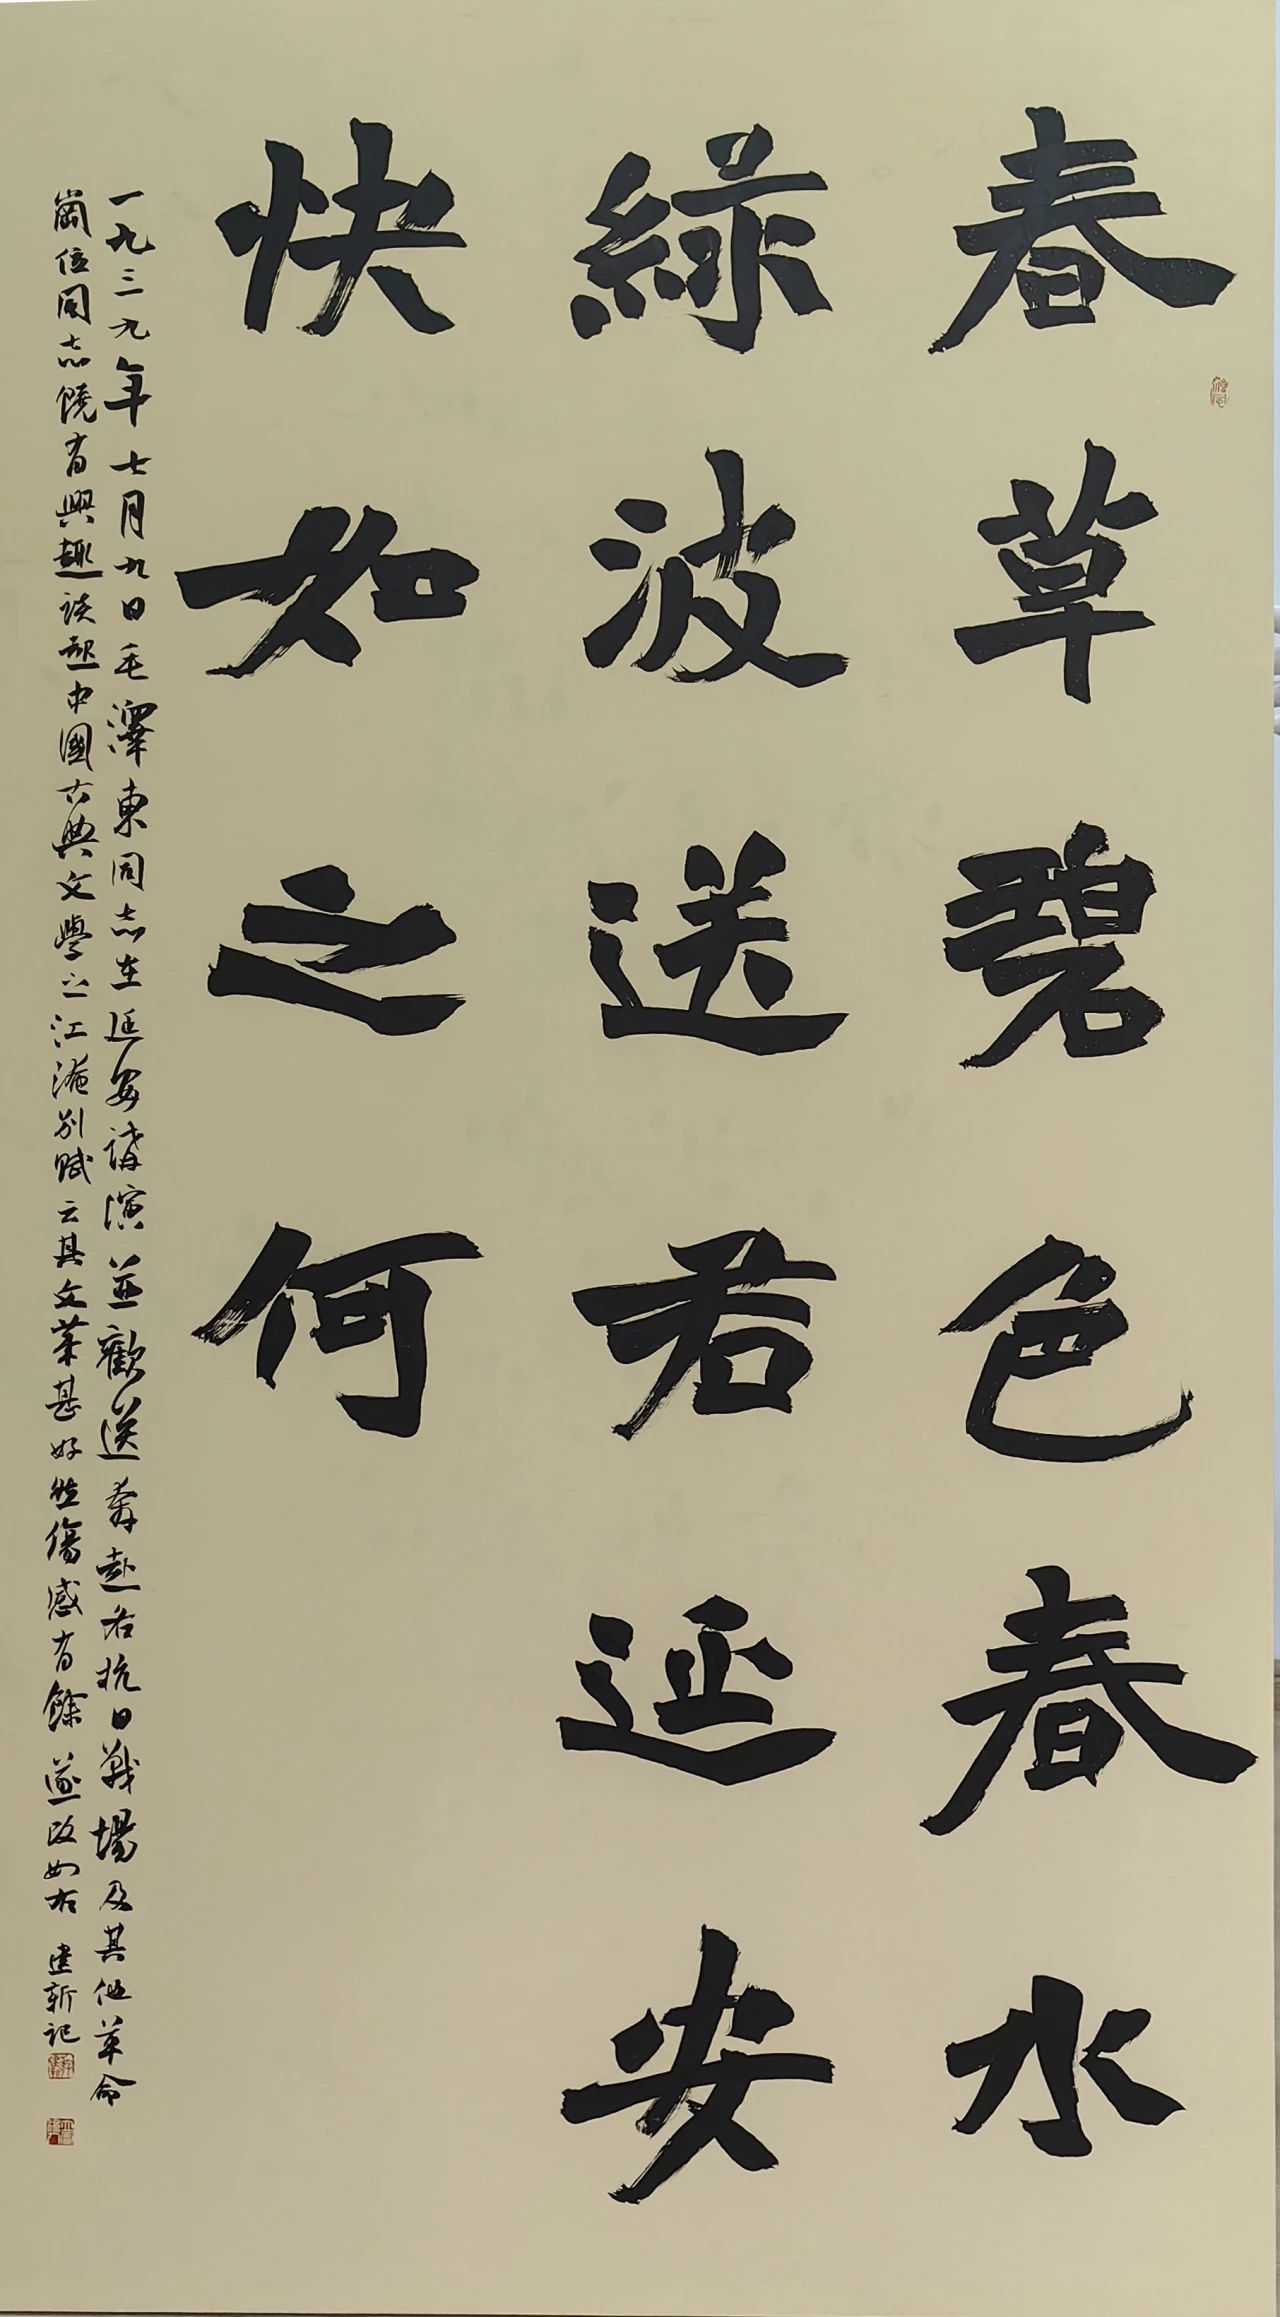 春草碧色春水
綠波送君延安
快如之何
一九三九年七月九日毛澤東同志在延安講演並歡送奔赴各抗日戰場及其他革命
崗位同志饒有興趣談起中國古典文學之江淹別賦云其文筆甚好然傷感有餘遂改如右 建新記